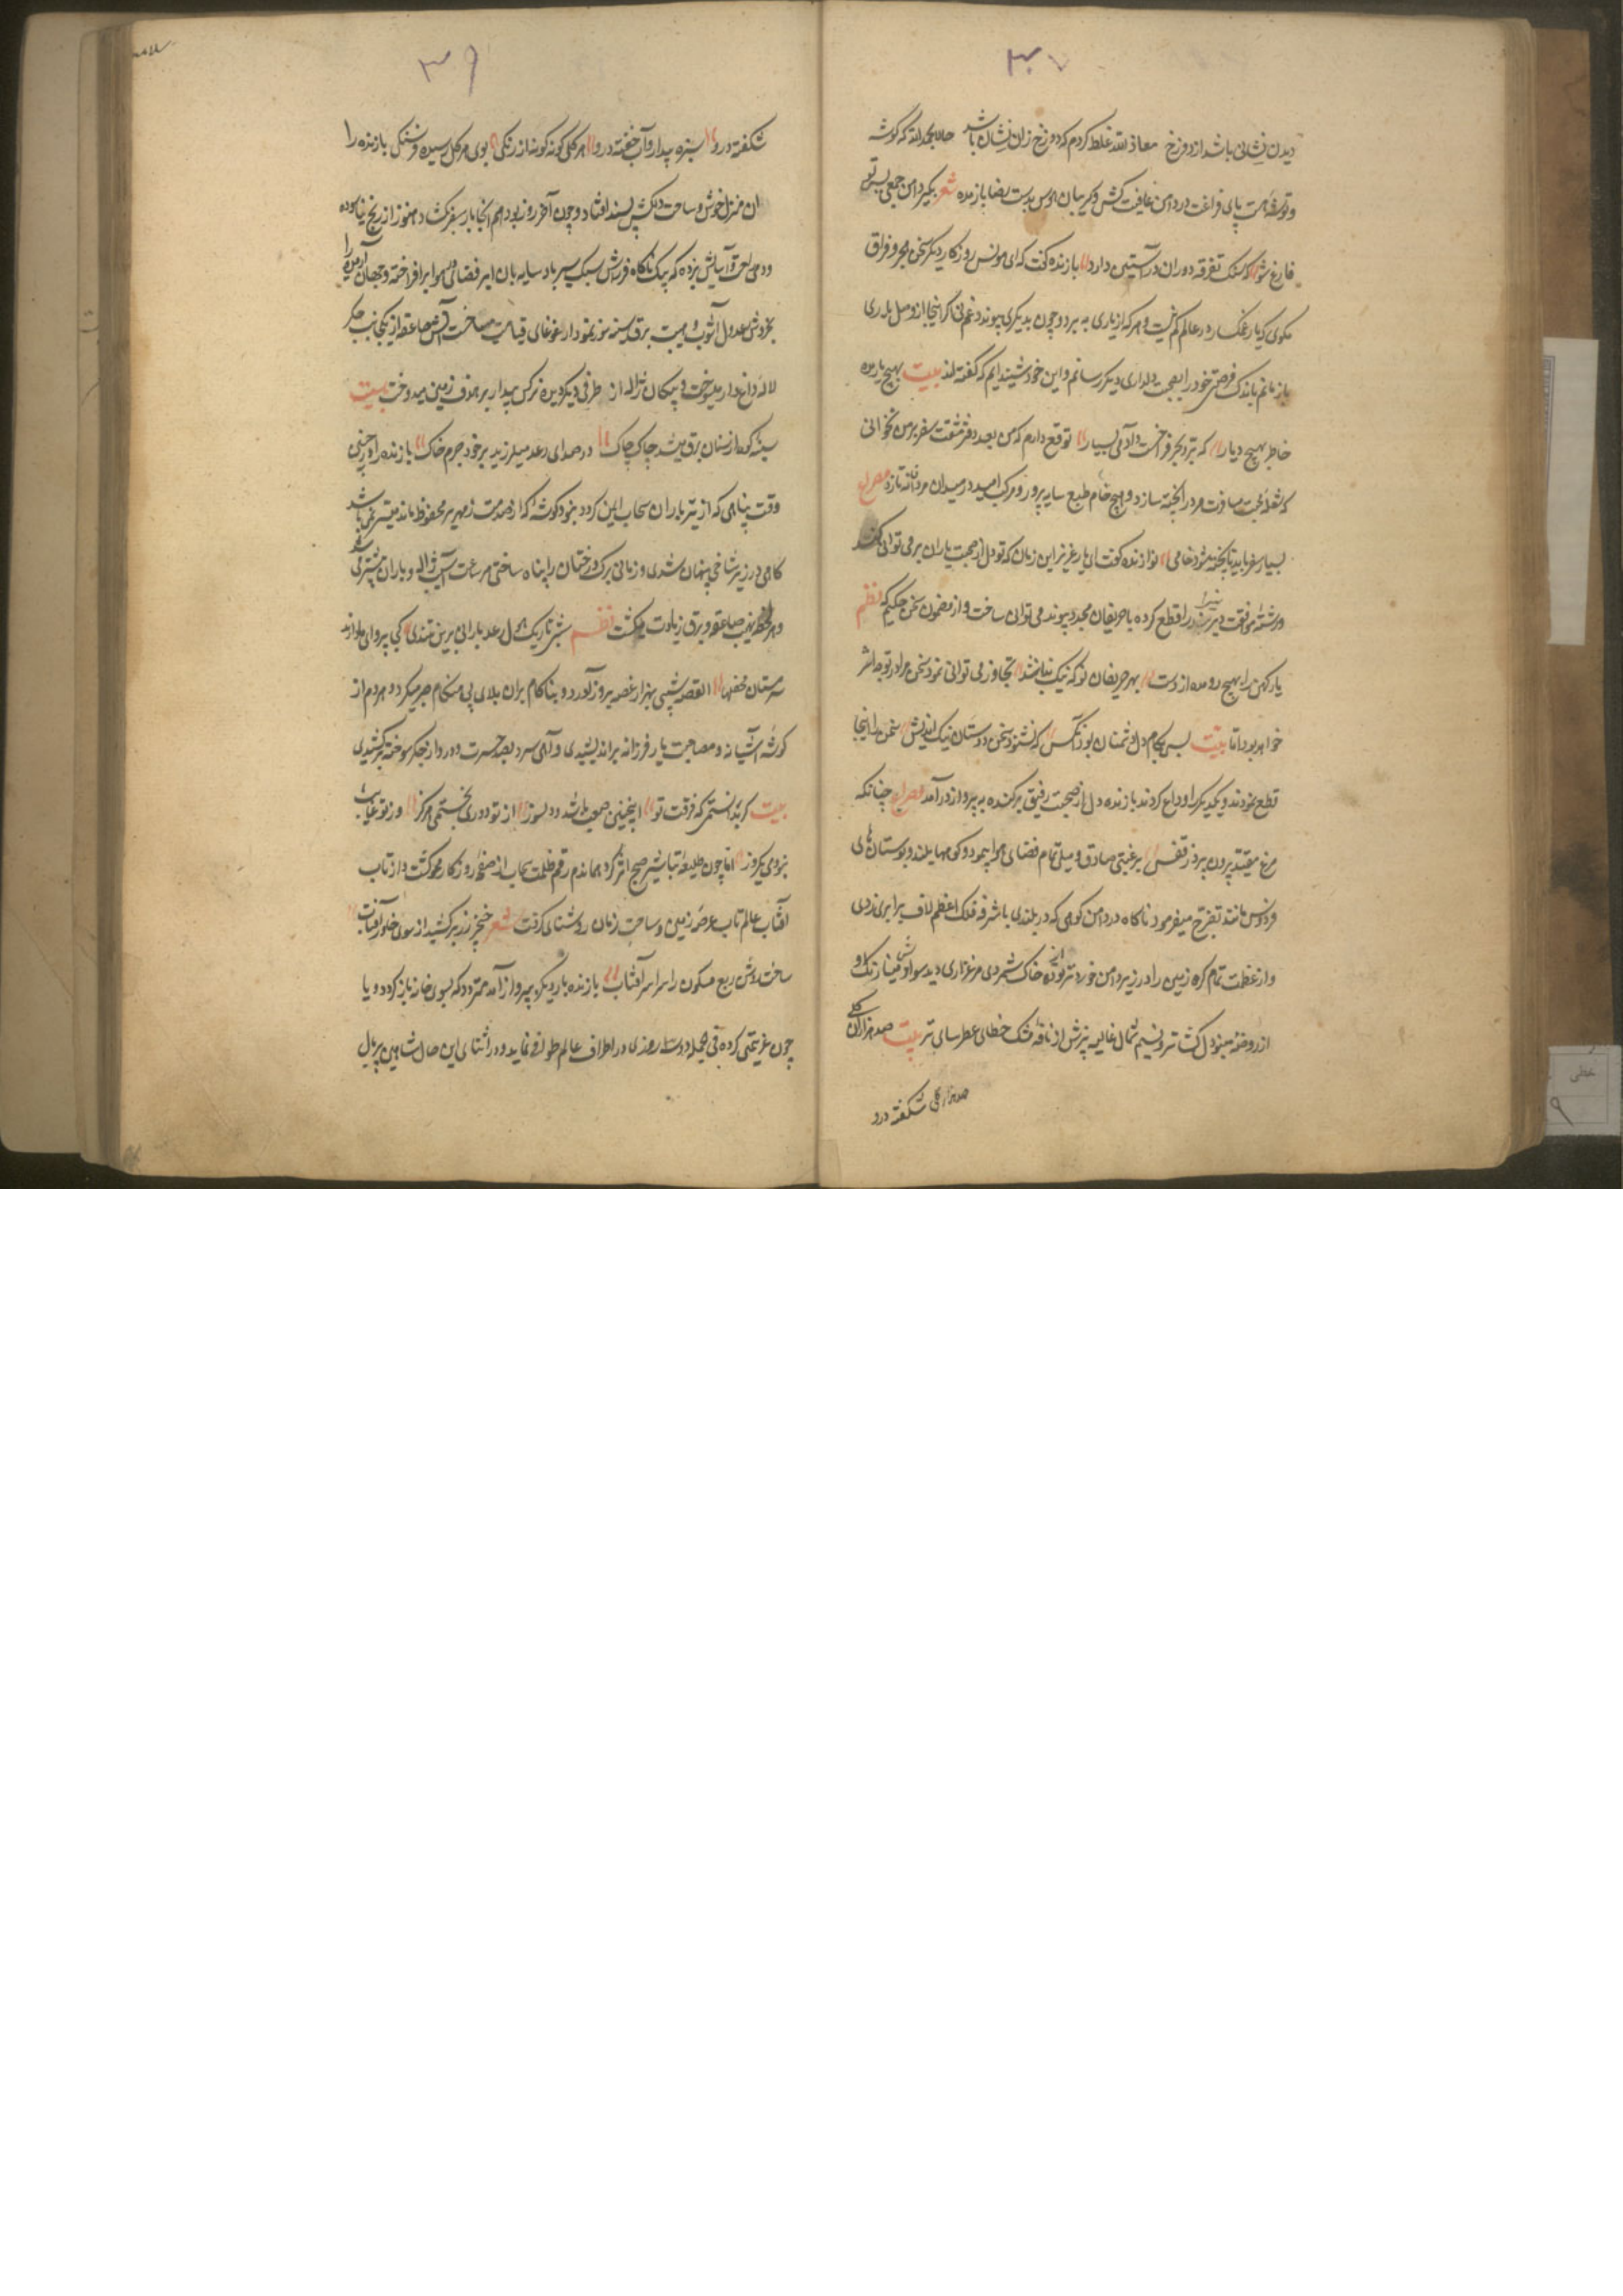 ۳۷
دیدن نشانی باشد از دوزخ معاذ الله غلط کردم که دوزخ زان نشان باشد حالا بحمد الله که گوشه
و توشه هست پای فراغت در دامن عافیت کش و گریبان هوس بدست رضا بازمده شعر بگیر دامن جمعی پس تو
فارغ شو که سنک تفرقه دوران در آستین دارد بازنده کفت که ای مونس روزکار دیکر سخن هجر و فراق
مکوی که یار غمکسار در عالم کم نیست و هرکه از یاری ببرد و چون بدیکری پیوندد غم نی اکر اینجا از وصل یاری
بازمانم باندک فرصتی خود را بصحبت دلداری دیکر رسانم و این خود شنیده ایم که کفته اند بیت بهیچ یار مده
خاطر بهیچ دیار که بر و بحر فراخست و آدمی بسیار توقع دارم که من بعد دفتر مشقت سفر بر من نخوانی
که شعله محنت مسافرت مرد را پخته سازد و هیچ خام طبع سایه پرور مرکب امید در میدان مردانه نتازد مصراع
بسیار سفر باید تا پخته شود خامی نوازنده کفت ای یار عزیز این زمان که تو دل از صحبت یاران بر می توانی کند
و رشته موافقت دیرینه را قطع کرده با حریفان مجدد پیوند می توانی ساخت و از مضمون سخن حکیم که نظم
یار کهن را بهیچ رو مده از دست بهر حریفان نو که نیک نباشد تجاوز می توانی نمود سخن مرا در تو چه اثر
خواهد بود اما بیت بس بکام دل دشمنان بود آنکس که نشنود سخن دوستان نیک اندیش سخن را اینجا
قطع نمودند و یکدیکر را وداع کردند بازنده دل از صحبت رفیق برکنده به پرواز درآمد مصراع چنانکه
مرغ مقید پرون پرد ز قفس برغبتی صادق و میلی تمام فضای هوا پیمود و کوههای بلند و بوستان های
فردوس مانند تفرج میفرمود ناکاه در دامن کوهی که در بلندی با شرفه فلک اعظم لاف برابری زدی
و از عظمت تمام کره زمین را در زیر دامن خود تر از توده خاک شمردی مرغزاری دید سواد او مینا رنک و
از روضه مینو دل کشا تر و نسیم شمال غالیه بیزش از نافه مشک خطای عطر سای تر بیت صد هزاران کل
صد هزار کل شکفته درو
۳۶
شکفته درو سبزه بیدار و آب خفته درو هر کلی کونه کونه از رنکی بوی هر کل رسیده فرسنکی بازنده را
آن منزل خوش و ساحت دلکش پسند افتاد و چون آخر روز بود هم آنجا بار سفر بکشاد هنوز از رنج راه نیاسوده
و دمی براحت و آسایش نزده که بیکناکاه فراش سبک سیر باد سایه بان ابر در فضای هوا برافراخته و جهان آرمیده را
بخروش رعد دل آشوب و هیبت برق سینه سوز نمودار غوغای قیامت ساخت آتش صاعقه از یکجانب جکر
لاله داغدار میسوخت و پیکان ژاله از طرفی دیکر دیده نرکس بیدار بر هدف زمین میدوخت بیت
سینه کوه از سنان برق میشد چاک چاک در صدای رعد میلرزید بر خود جرم خاک بازنده را در چنین
وقت پناهی که از تیر باران سحاب ایمن کردد نبود کوشه که از صدمت زمهریر محفوظ ماند میسر نمی شد
کاهی در زیر شاخی پنهان شدی و زمانی برک درختان را پناه ساختی هر ساعت آسیب ژاله و باران بیشتر می
و هر لحظه نهیب صاعقه و برق زیادت میکشت نظم شبی تاریک و هول رعد بارانی برین تندی کجا پروای ما دارند
سرمستان محفلها القصه شبی بهزار غصه بروز آورد و بناکام بران بلای بی هنکام صبر میکرد و هردم از
کوشه آشیانه و مصاحبت یار فرزانه براندیشیدی و آهی سرد بصد حسرت و درد از جکر سوخته برکشیدی
بیت کر بدانستمی که فرقت تو اینچنین صعب باشد و دلسوز از تو دوری نجستمی هرکز وز تو غایب
نبودمی یکروز اما چون طلیعه تباشیر صبح اثر کرد هماندم رقم ظلمت سحاب از صفحه روزکار محو کشت و از تاب
آفتاب عالم تاب عرصه زمین و ساحت زمان روشنایی کرفت شعر خنجر زر برکشید از سوی خاور آفتاب
ساخت روشن ربع مسکون را سراسر آفتاب بازنده بار دیکر بپرواز آمد متردد که بسوی خانه باز کردد و یا
چون عزیمتی کرده فی الجمله دو سه روزی در اطراف عالم طوافی نماید و در اثنای این حال شاهین پر بال